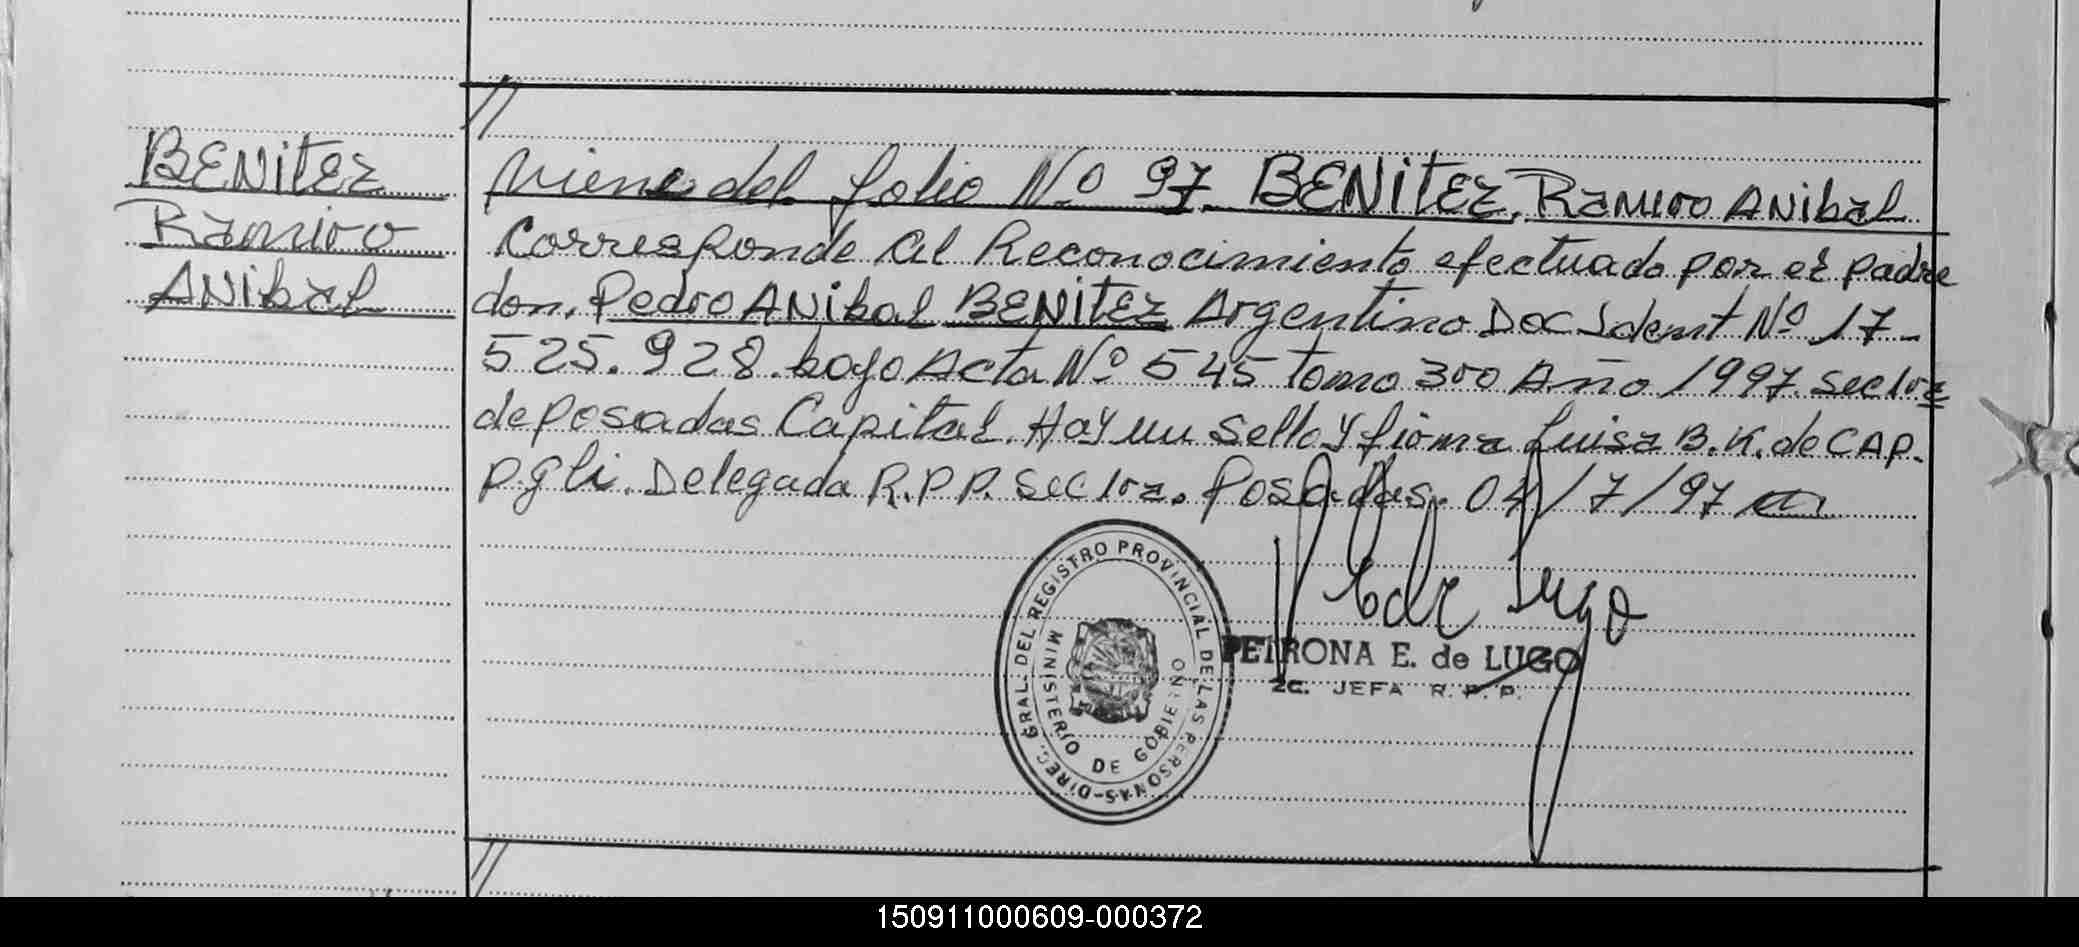 //
BENitEz
Ramiro
ANibal
Viene del folio Nº 97. BENitEz, Ramiro ANibal
Corresponde al Reconocimiento efectuado por el padre
don, Pedro ANibal BENitEz Argentino Doc Ident Nº 17-
525.928. bajo Acta Nº 545 tomo 300 Año 1997. Sec 1ra
de posadas Capital. Hay un Sello y firma Luisa B. K. de CAP.
P.gli. Delegada R.P.P. Sec 1ra. Posadas. 04/7/97
DIREC. GRAL. DEL REGISTRO PROVINCIAL DE LAS PERSONAS
MINISTERIO DE GOBIERNO
de Lugo
PETRONA E. de LUGO
2C. JEFA R. P. P.
//
150911000609-000372